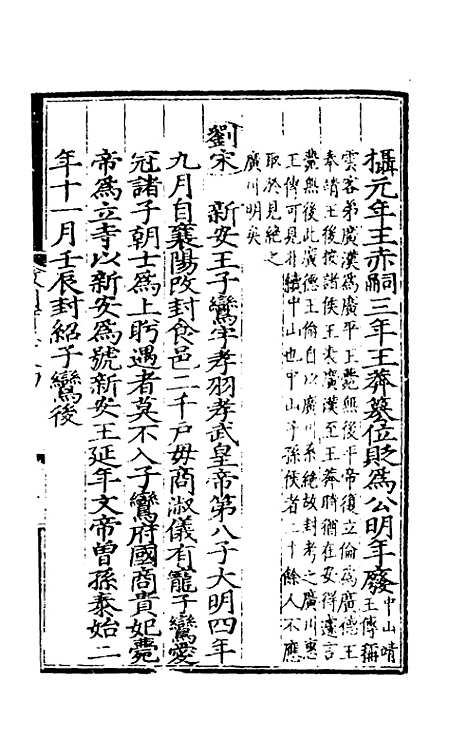 攝元年王赤嗣三年王莽篡位貶為公明年廢中山靖王傳稱
雲客弟廣漢為廣平王薨無後平帝復立倫為廣德王
奉靖王後按諸侯王表廣漢至王莽時猶在安得遽言
薨無後此廣德王倫自以廣川系絶故封考之廣川惠
王傳可見非續中山也中山子孫侯者二十餘人不應
取於見絶之
廣川明矣
劉宋 新安王子鸞字孝羽孝武皇帝第八子大明四年
九月自襄陽改封食邑二千戶毋商淑儀有寵子鸞愛
冠諸子朝士為上盻遇者莫不入子鸞府國商貴妃薨
帝為立寺以新安為號新安王延年文帝曽孫泰始二
年十一月壬辰封紹子鸞後